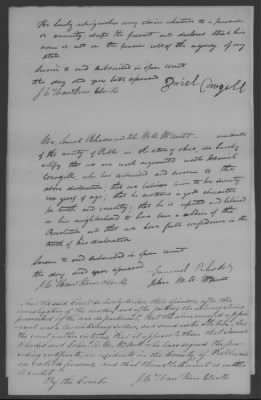 He hereby relinquishes every claim whatever to a pension
or annuity, except the present and declares that his
name is not on the pension roll of the agency of any
state
Sworn to and subscribed in open court
the day and year before aforesaid
Daniel Cowgill
We, Samuel Rhodes and John M. residents
of the county of in the state of Ohio, do hereby
certify that we are well acquainted with Daniel
Cowgill, who has subscribed and sworn to the
above declaration; that we believe him to be seventy
years of age; that he sustains a good character
for truth and veracity; that he is reputed and believed
in his neighborhood to have been a soldier of the
Revolution and that we have full confidence in the
truth of his declaration
Sworn to and subscribed in open court
the day and year aforesaid
Samuel Rhodes
John M.
And the said Court do hereby declare their opinion after the
investigation of the matter, and after putting the interrogatories
prescribed by the war department, that the above named applicant
was a revolutionary soldier, and served as he states. And
the court further certifies, that it appears to them that Samuel
Rhodes and John M. who have signed the preceding
certificate, are residents in the county of
and that their statement is entitled
to credit
By the Court
Clerk